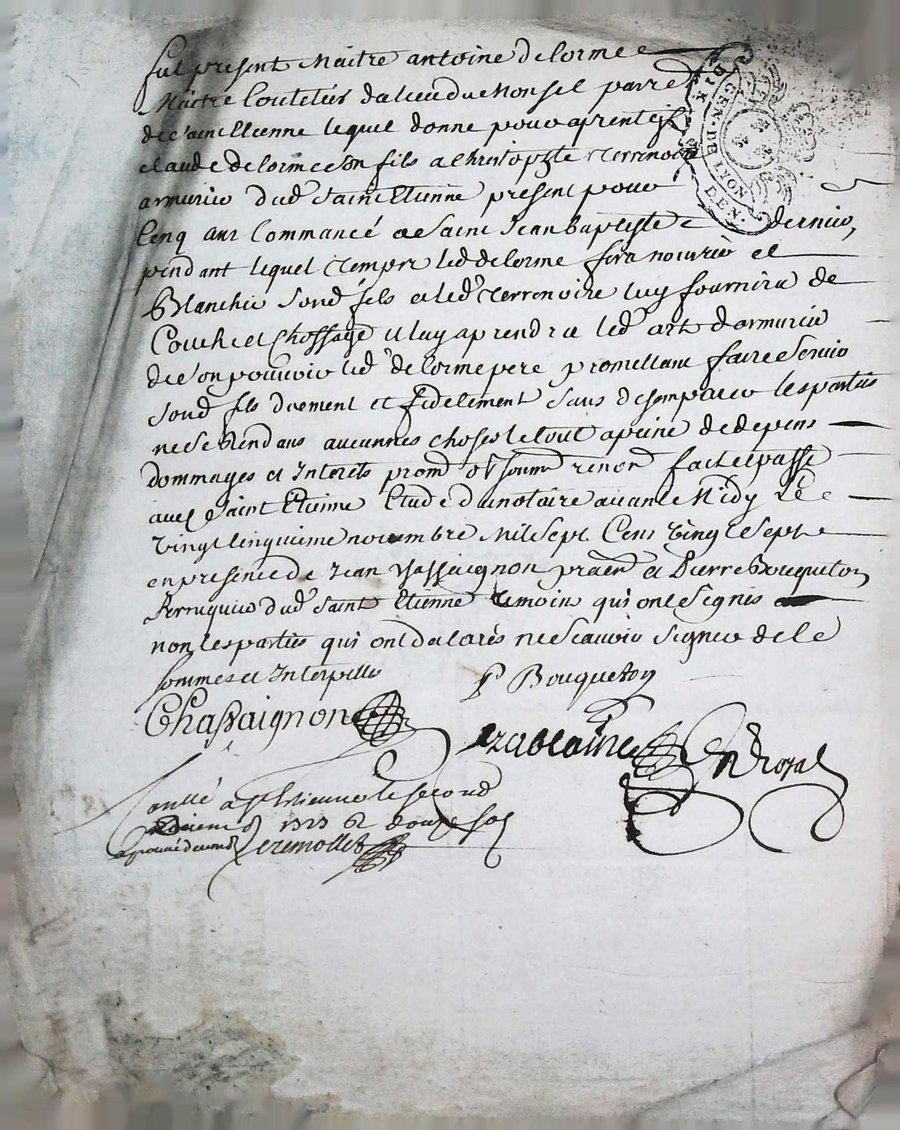 fut present Maitre antoine delorme
Maitre Coutelier du lieu du Monsel parre
de saint Etienne lequel donne pour aprentif
claude delorme son fils a christophle terrenoire
armurier dud saint Etienne present pour
Cinq ans Commancé a Saint Jean Baptiste dernier,
pendant lequel temps led delorme fera nourir et
Blanchir sond fils et led terrenoire luy fournira de
Couche et choffage et luy aprendra led art d'armurier
de son pouvoir led delorme pere promettant faire servir
sond fils duement et fidelement sans desemparer les parties
ne se rendans aucunnes choses le tout a peine de depens
dommages et Interets prom obl soum renon fait et passé
aud Saint Etienne Etude du notaire avant Midy Le
vingt cinquieme novembre Mil sept Cens vingt sept
en presence de Jean Chassaignon praen et Pierre Bouqueton
Perruquier dud saint Etienne temoins qui ont signés
non les parties qui ont dalarés ne scavoir signer de ce
sommes et Interpellés
P Bouqueton
Chassaignon
nre Royal
Conllé a St Etienne le second
xbre 1727 R douze sols